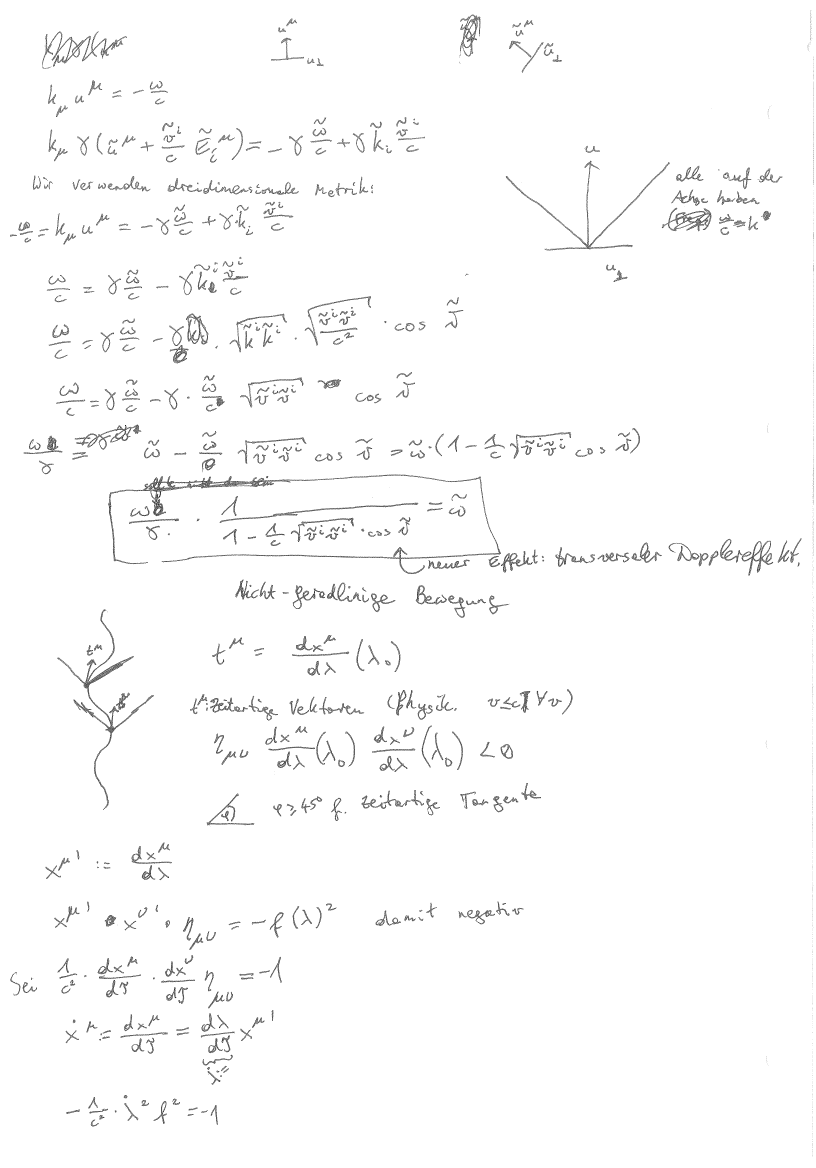 u^μ
u_⊥
ũ^μ
ũ_⊥
k_μ u^μ = - ω/c
k_μ γ(ũ^μ + ṽ^i/c Ẽ_i^μ) = - γ ω̃/c + γ k̃_i ṽ^i/c
Wir verwenden dreidimensionale Metrik:
-ω/c = k_μ u^μ = -γ ω̃/c + γ k̃_i ṽ^i/c
u
alle auf der
Achse haben
ω/c = k
u_⊥
ω/c = γ ω̃/c - γ k̃^i ṽ^i/c
ω/c = γ ω̃/c - γ · √(k̃^i k̃^i) · √(ṽ^i ṽ^i/c²) · cos ϑ̃
ω/c = γ ω̃/c - γ · ω̃/c √(ṽ^i ṽ^i) cos ϑ̃
ω/γ = ω̃ - ω̃/c √(ṽ^i ṽ^i) cos ϑ̃ = ω̃ · (1 - 1/c √(ṽ^i ṽ^i) cos ϑ̃)
ω/γ · 1/(1 - 1/c √(ṽ^i ṽ^i) · cos ϑ̃) = ω̃
neuer Effekt: transversaler Dopplereffekt.
Nicht-geradlinige Bewegung
t^μ
t^μ = dx^μ/dλ (λ₀)
t^μ: zeitartige Vektoren (Physik. v≤c ∀v)
η_μν dx^μ/dλ (λ₀) dx^ν/dλ (λ₀) < 0
φ
φ ≥ 45° f. zeitartige Tangente
x^μ' := dx^μ/dλ
x^μ' · x^ν' · η_μν = -f(λ)² damit negativ
Sei 1/c² · dx^μ/dτ · dx^ν/dτ η_μν = -1
ẋ^μ = dx^μ/dτ = dλ/dτ x^μ'
λ̇ :=
- 1/c² · λ̇² f² = -1